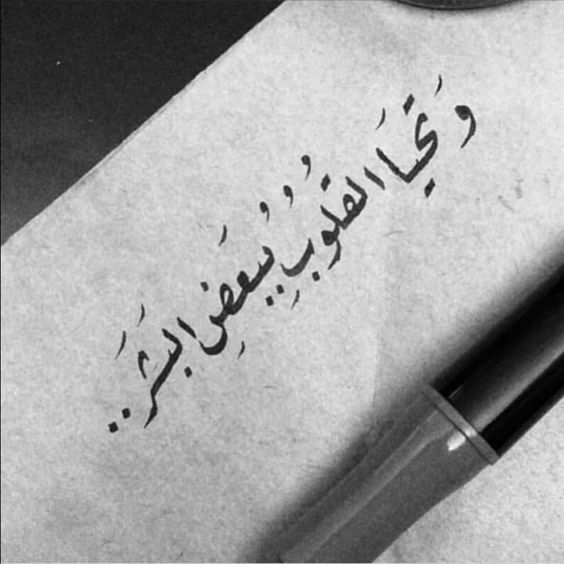 وَتحيَا القُلُوبُ بِبَعضِ البَشَرَ..